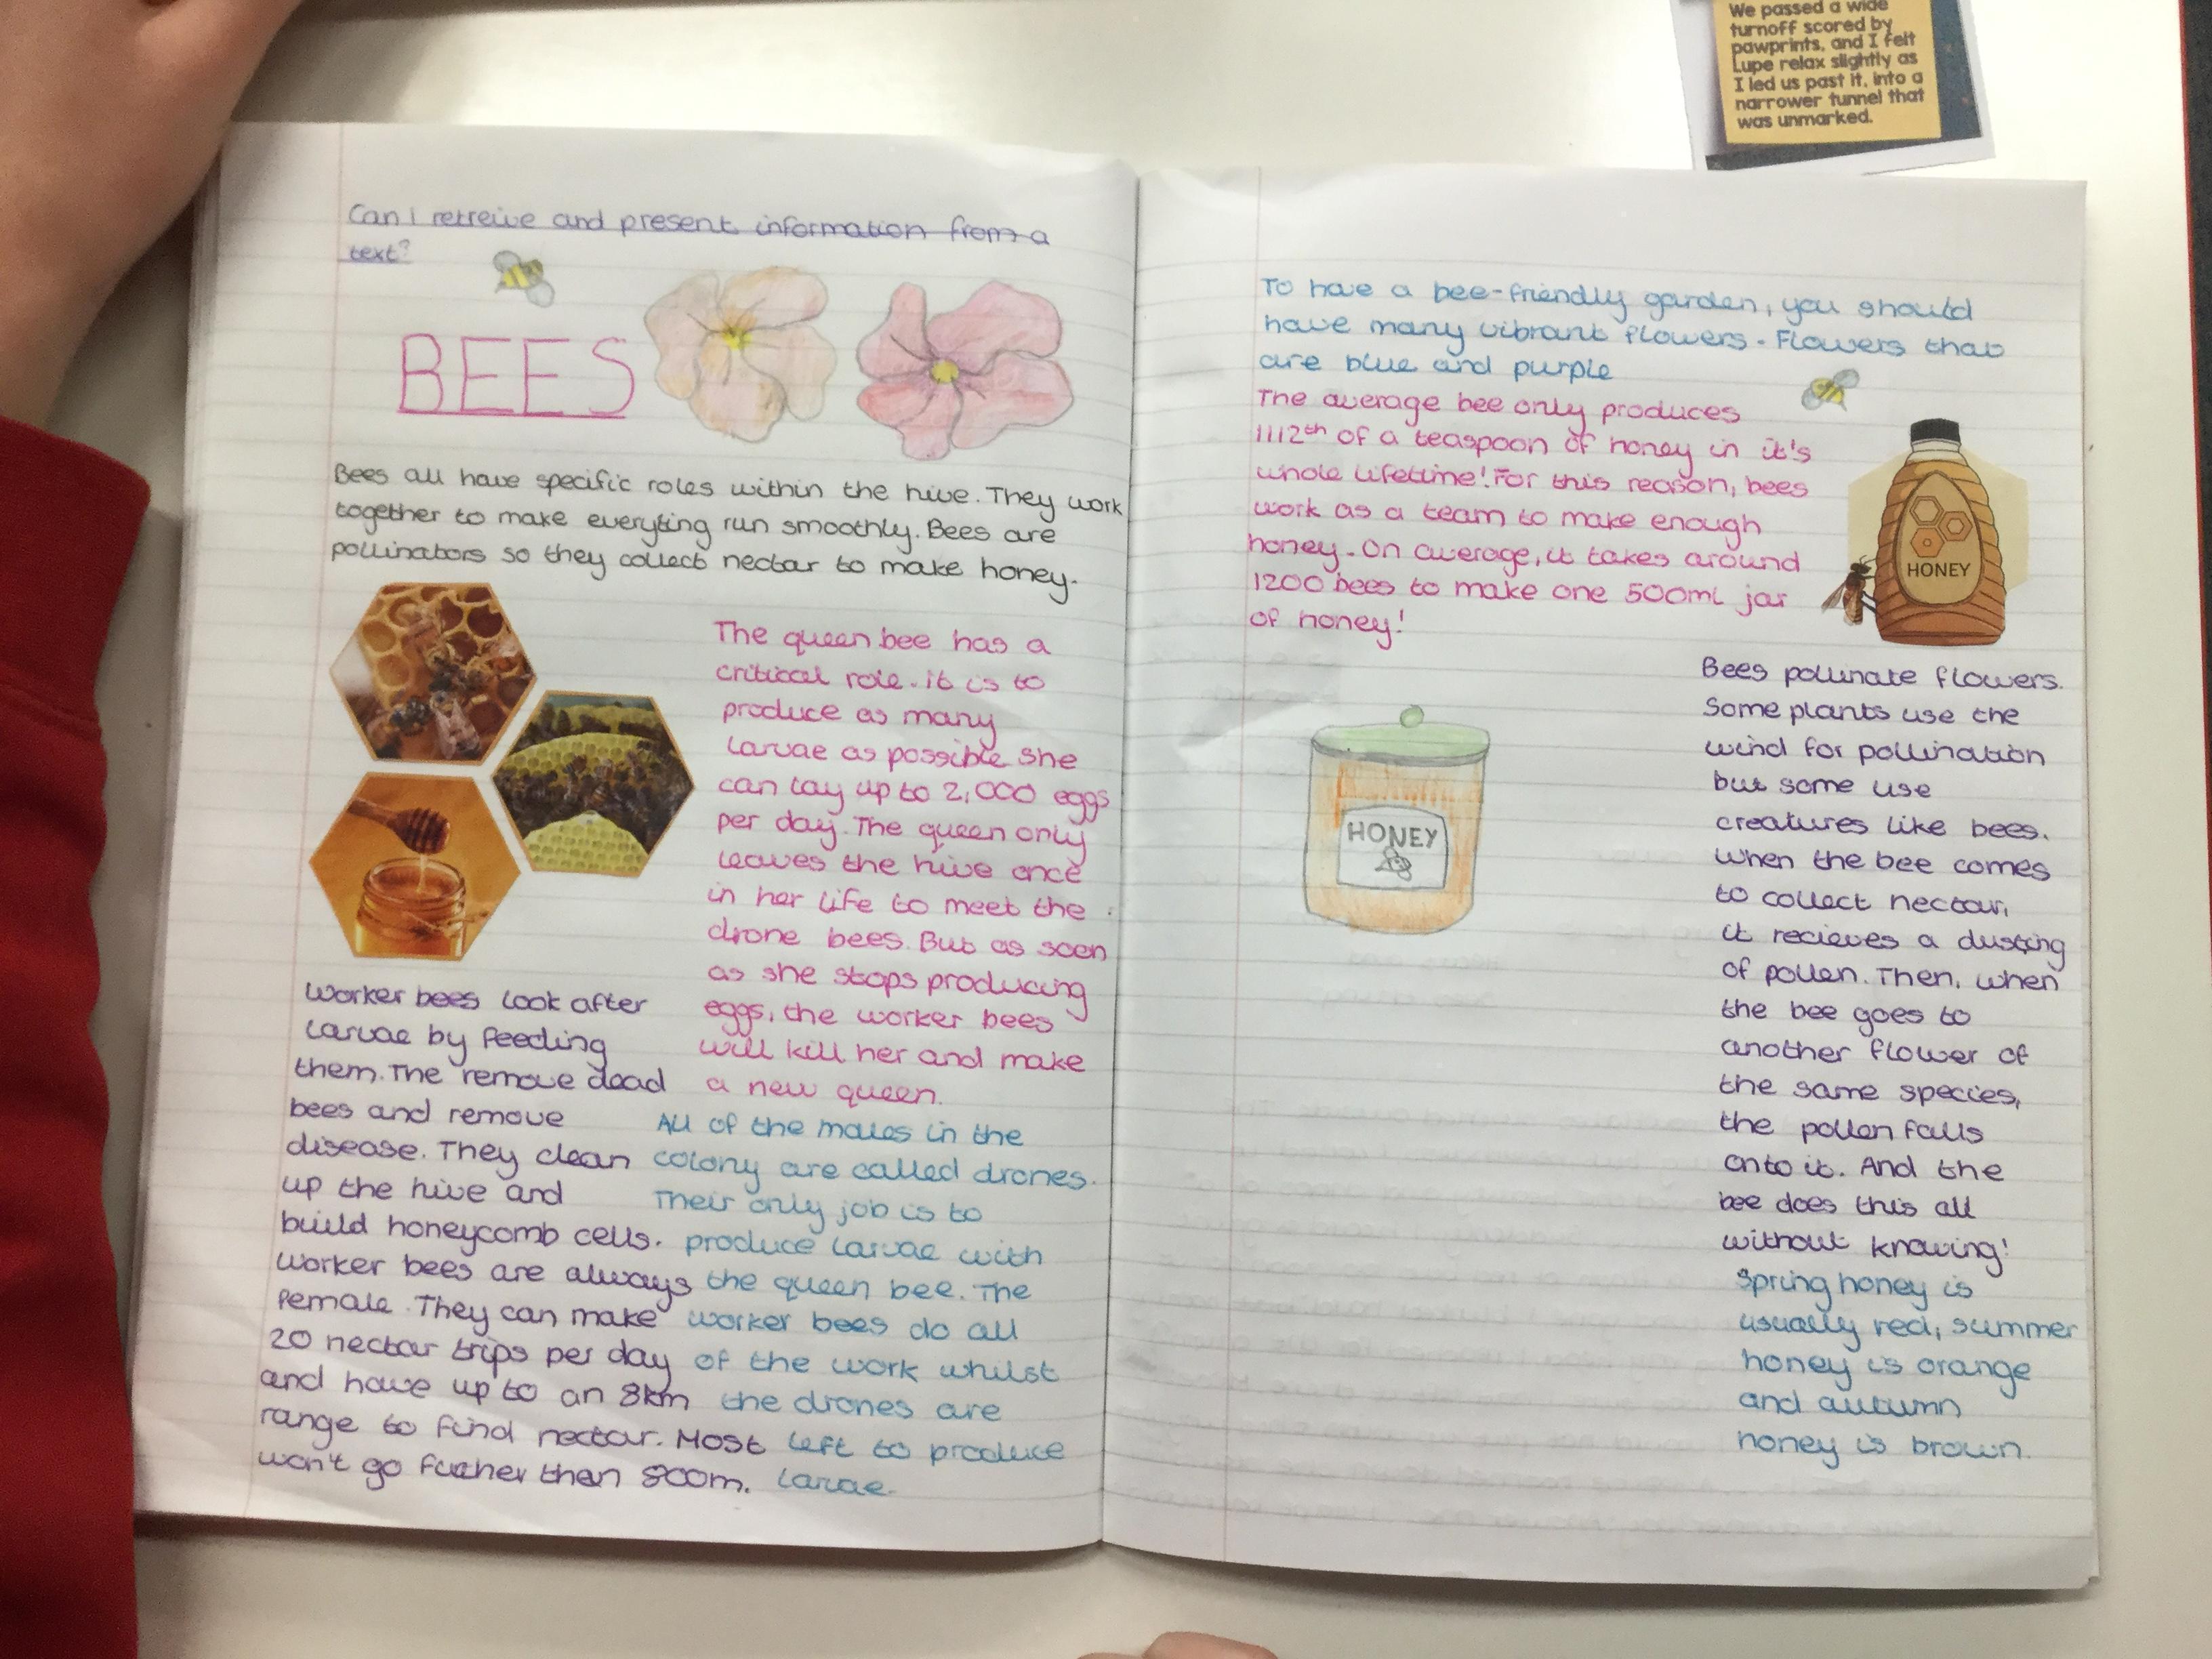 We passed a wide
turnoff scored by
pawprints, and I felt
Lupe relax slightly as
I led us past it, into a
narrower tunnel that
was unmarked.
Can I retreive and present information from a
text?
BEES
Bees all have specific roles within the hive. They work
together to make everyting run smoothly. Bees are
pollinators so they collect nectar to make honey.
The queen bee has a
critical role. It is to
produce as many
larvae as possible she
can lay up to 2,000 eggs
per day. The queen only
leaves the hive once
in her life to meet the
drone bees. But as soon
as she stops producing
eggs, the worker bees
will kill her and make
a new queen.
Worker bees look after
larvae by feeding
them. The remove dead
bees and remove
disease. They clean
up the hive and
build honeycomb cells.
Worker bees are always
female. They can make
20 nectar trips per day
and have up to an 8km
range to find nectar. Most
won't go further than 800m.
All of the males in the
colony are called drones.
Their only job is to
produce larvae with
the queen bee. The
worker bees do all
of the work whilst
the drones are
left to produce
larvae.
To have a bee-friendly garden, you should
have many vibrant flowers. Flowers that
are blue and purple
The average bee only produces
1/12th of a teaspoon of honey in it's
whole lifetime! For this reason, bees
work as a team to make enough
honey. On average, it takes around
1200 bees to make one 500ml jar
of honey!
HONEY
HONEY
Bees pollinate flowers.
Some plants use the
wind for pollination
but some use
creatures like bees.
When the bee comes
to collect nectar,
it recieves a dusting
of pollen. Then, when
the bee goes to
another flower of
the same species,
the pollen falls
onto it. And the
bee does this all
without knowing!
Spring honey is
usually red, summer
honey is orange
and autumn
honey is brown.